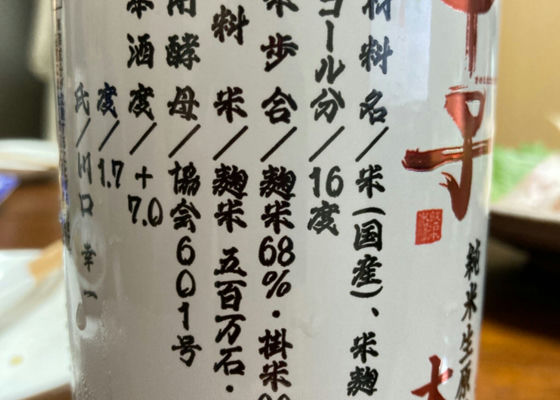 子
純米生原
材料名/米(国産)、米麹
コール分/16度
米歩合/麹米68%・掛米
料米/麹米 五百万石・
用酵母/協会601号
本酒度/+7.0
度/1.7
氏/川口幸一